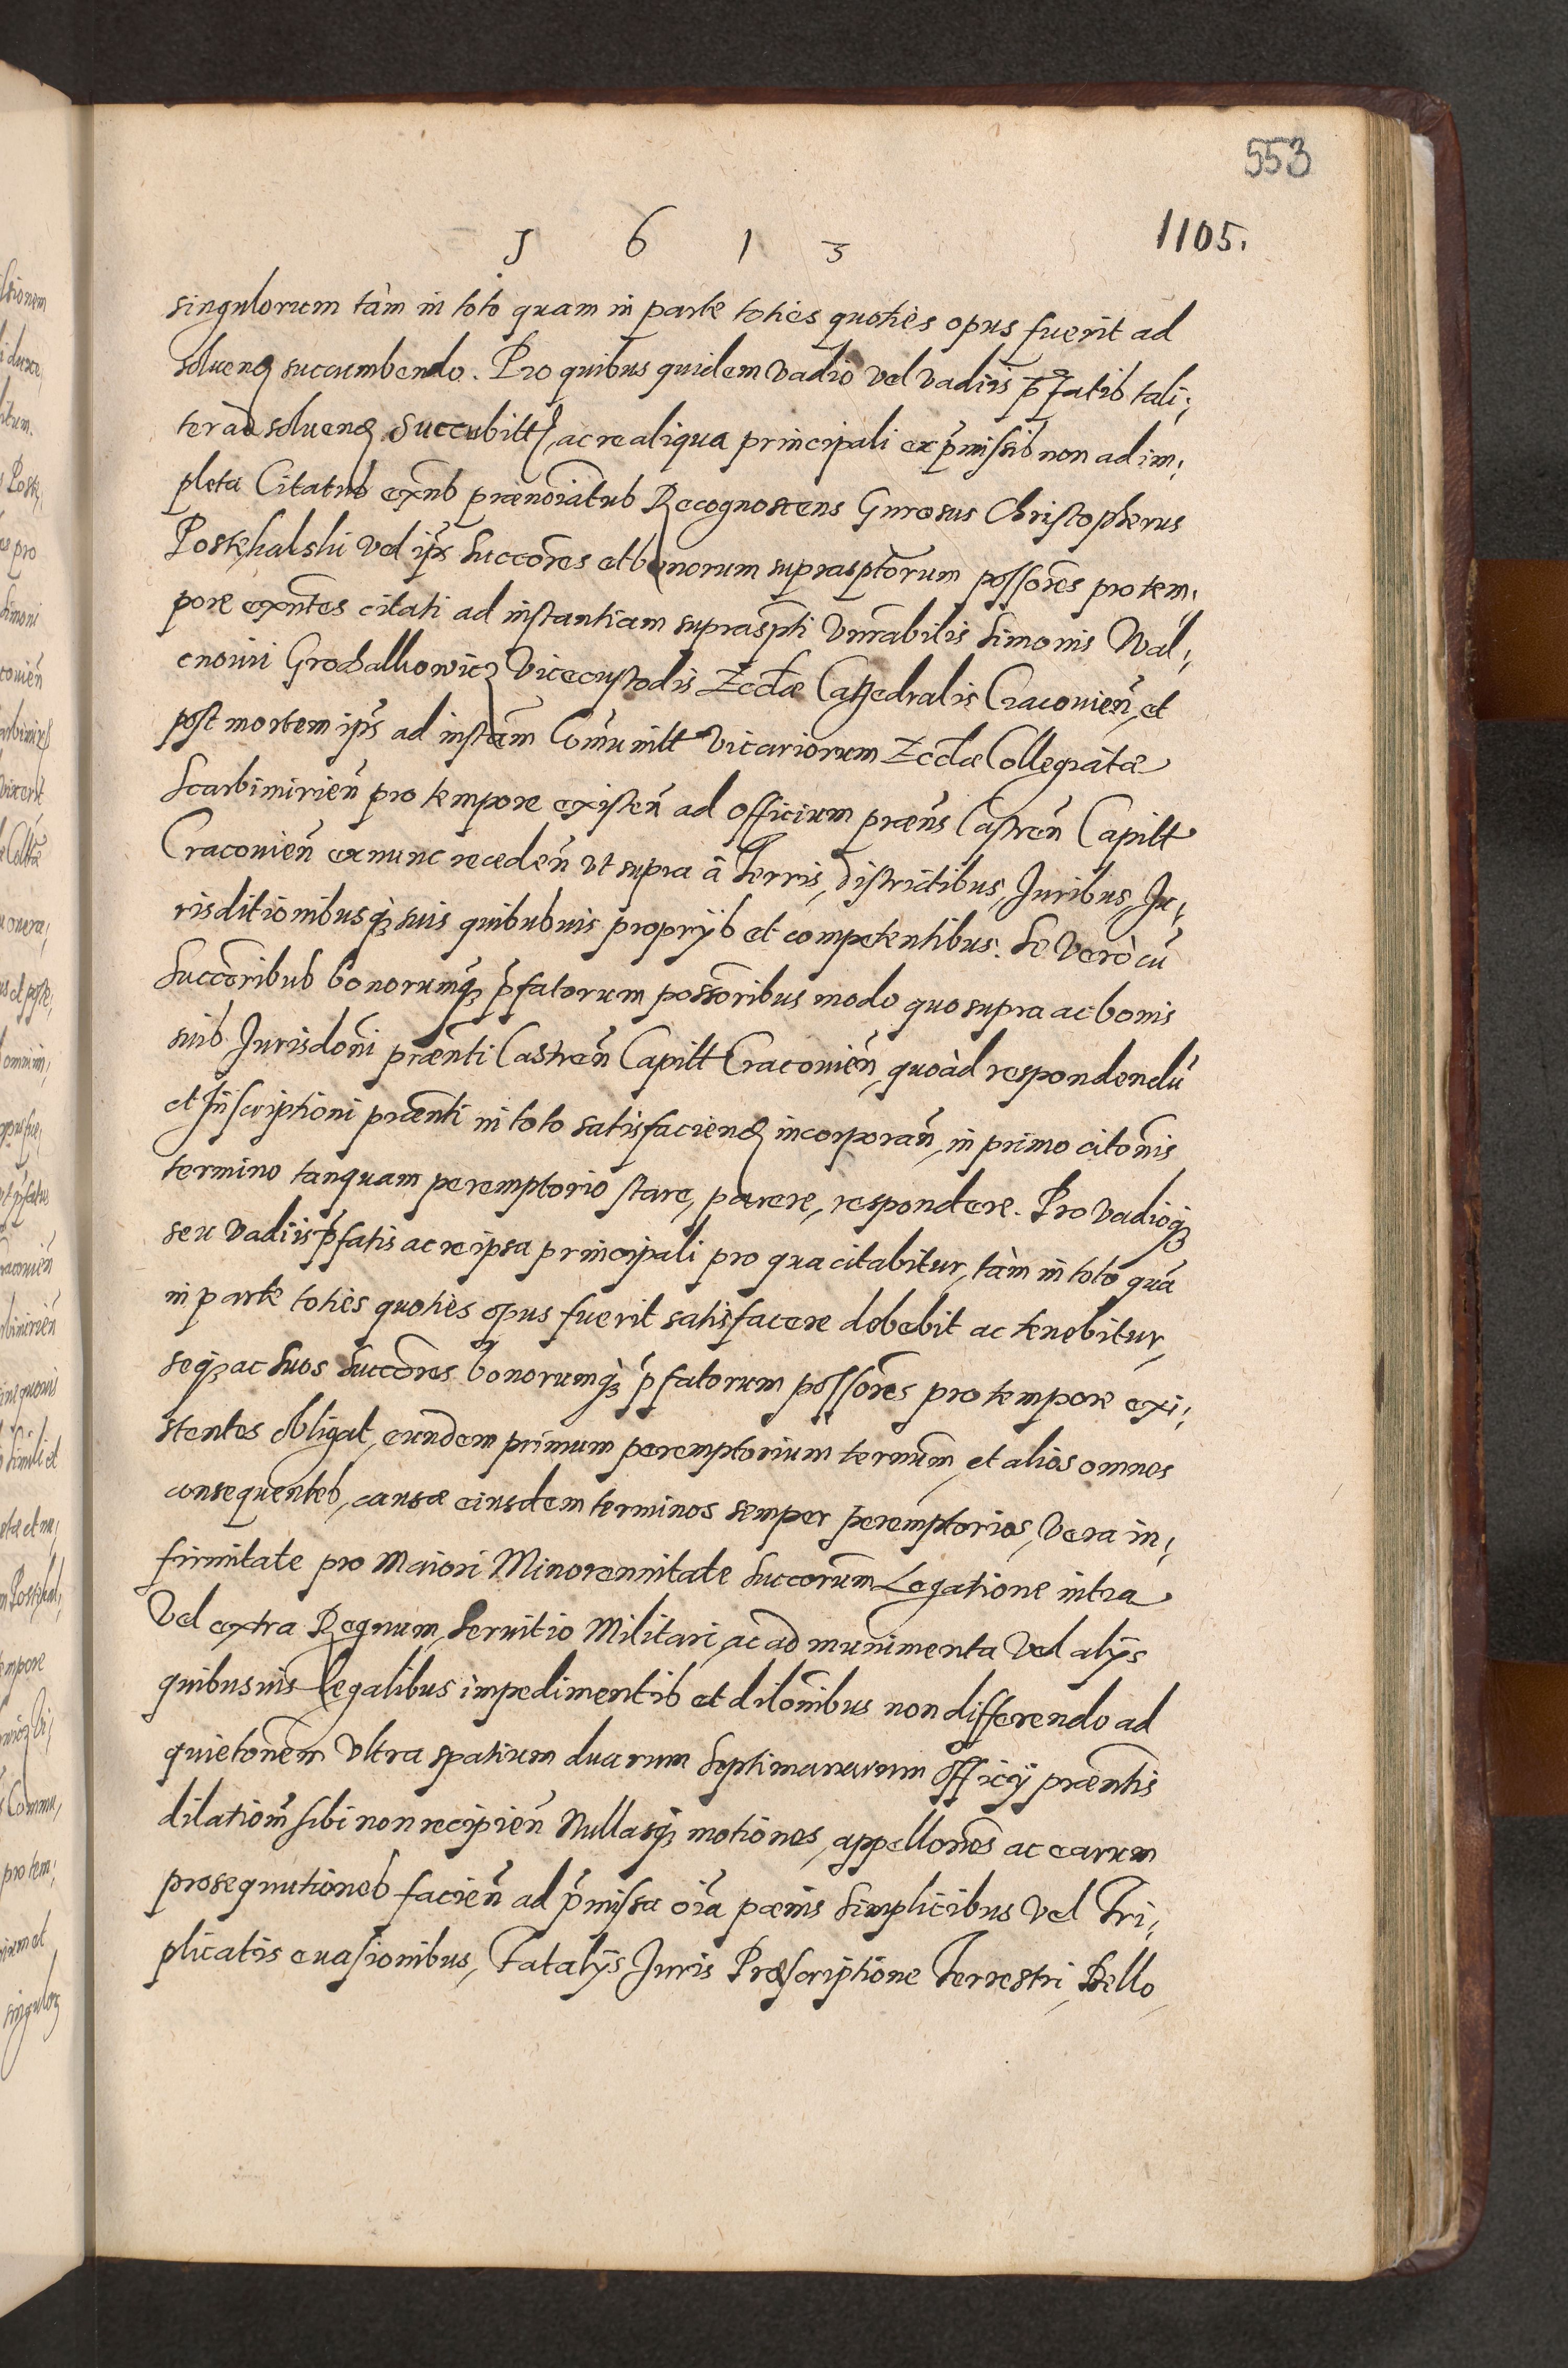 553
1613
1105.
singulorum tàm in toto quam in parte toties quoties opus fuerit ad
soluend succumbendo. Pro quibus quidem vadio vel vadiis p̄fatis tali;
ter ad soluend succubitt, ac re aliqua principali ex p̄missis non adim;
pleta Citatus exn̄s prænoīatus Recognoscens Gnrosus Christopherus
Poskhalski vel ip̄s Succōres et bonorum suprasp̄torum possōres pro tem;
pore exn̄tes citati ad instantiam suprasp̄ti Vnrabilis Simonis Wal;
Grochalkowicz Vicecustodis Ecclæ Cathedralis Cracouien̄, et
post mortem ip̄s ad instam Com̄unitt Vicariorum Ecclæ Collegiatæ
Scarbimirien̄ pro tempore existen̄ ad officium præns Castren̄ Capitt
Cracouien̄ ex nunc receden̄ vt supra ā Terris, districtibus, Juribus, Ju;
risditionibusq; suis quibusuis proprijs et competentibus. Se verò cū
Succōribus bonorumq; p̄fatorum possōribus modo quo supra ac bonis
suis Jurisdōni præn̄ti Castren̄ Capitt Cracouien̄, quoàd respondendū
et Inscriptioni præn̄ti in toto satisfaciend incorporan̄, in primo citōnis
termino tanquam peremptorio stare, parere, respondere. Pro vadioq;
seu vadiis p̄fatis ac re ipsa principali pro qua citabitur, tàm in toto quā
in parte toties quoties opus fuerit satisfacere debebit ac tenebitur,
seq; ac suos Succōres bonorumq; p̄fatorum possōres pro tempore exi;
stentes obligat, eundem primum peremptorium termīnm, et alios omnes
consequentes, causæ eiusdem terminos semper peremptorios, vera in;
firmitate pro Maiori Minorennitate Succorum Legatione intra
Vel extra Regnum, Seruitio Militari, ac ad munimenta Vel alijs
quibusuis legalibus impedimentis et dilōnibus non differendo ad
quietōnem Vltra spatium duarum Septimanarum officij præntis
dilationm̄ sibi non recipien̄ Nullasq; motiones, appellōnes ac earum
prosequutiones facien̄ ad p̄missa oīa pœnis Simplicibus Vel Tri;
plicatis euasionibus, Fatalijs Juris Præscriptione Terrestri, Bello,